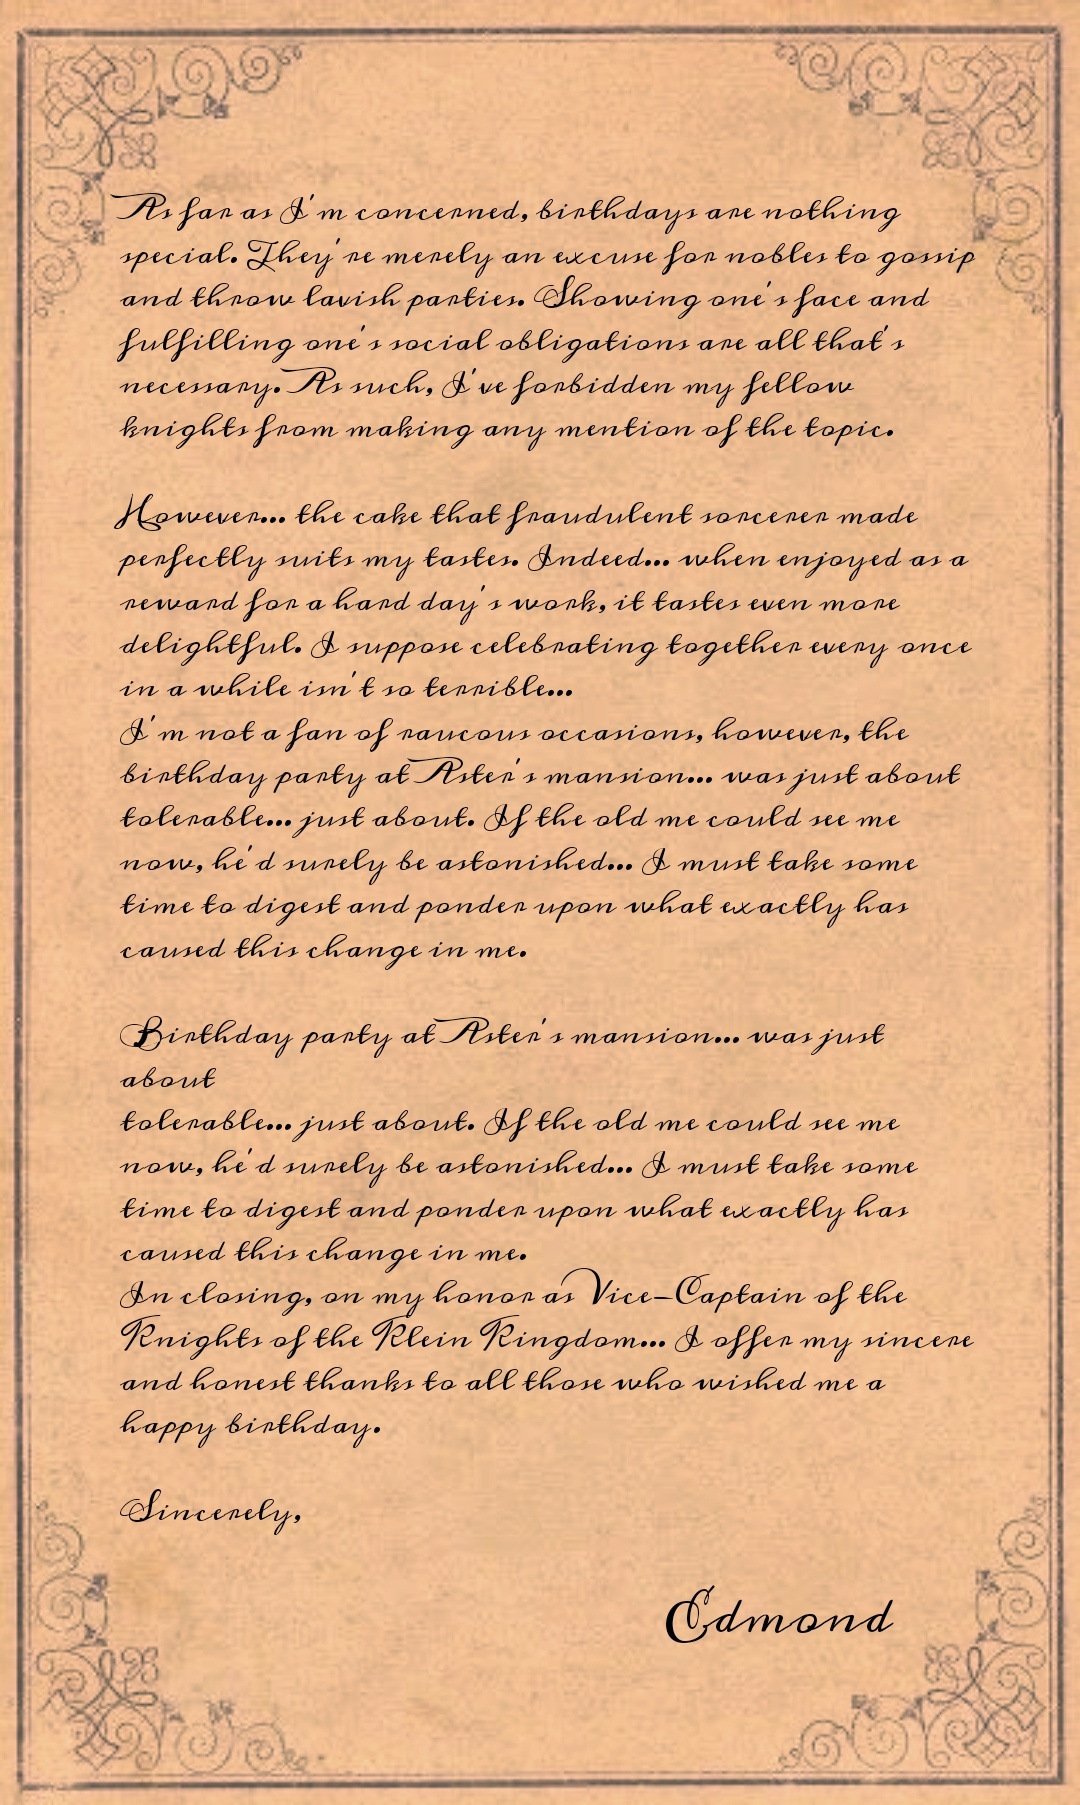 As far as I'm concerned, birthdays are nothing
special. They're merely an excuse for nobles to gossip
and throw lavish parties. Showing one's face and
fulfilling one's social obligations are all that's
necessary. As such, I've forbidden my fellow
knights from making any mention of the topic.
However... the cake that fraudulent sorcerer made
perfectly suits my tastes. Indeed... when enjoyed as a
reward for a hard day's work, it tastes even more
delightful. I suppose celebrating together every once
in a while isn't so terrible...
I'm not a fan of raucous occasions, however, the
birthday party at Aster's mansion... was just about
tolerable... just about. If the old me could see me
now, he'd surely be astonished... I must take some
time to digest and ponder upon what exactly has
caused this change in me.
Birthday party at Aster's mansion... was just
about
tolerable... just about. If the old me could see me
now, he'd surely be astonished... I must take some
time to digest and ponder upon what exactly has
caused this change in me.
In closing, on my honor as Vice-Captain of the
Knights of the Klein Kingdom... I offer my sincere
and honest thanks to all those who wished me a
happy birthday.
Sincerely,
Edmond